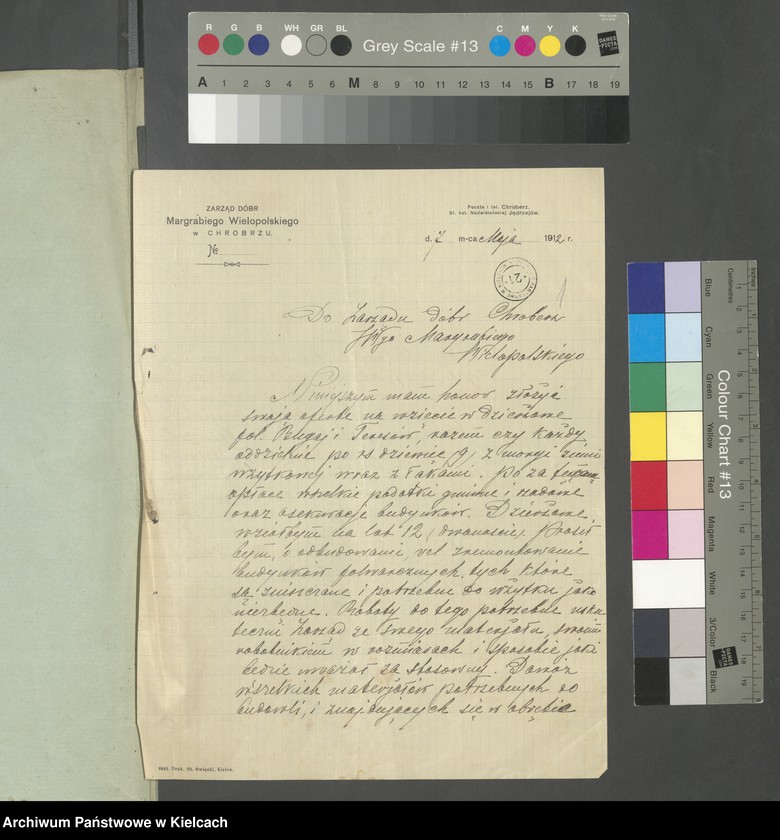 R G B WH GR BL Grey Scale #13 C M Y K DANES PICTA
A 1 2 3 4 5 6 M 8 9 10 11 12 13 14 15 B 17 18 19
ZARZĄD DÓBR
Margrabiego Wielopolskiego
w CHROBRZU.
№
Poczta i tel. Chroberz.
St. kol. Nadwiślańskiej Jędrzejów.
d. 7 m-ca Maja 1912 r.
21
Do Zarządu dóbr Chroberz
JWgo Margrabiego
Wielopolskiego
Niniejszym mam honor złożyć
swoją ofertę na wzięcie w dzierżawę
fol. Bugaj i Teresów, razem czy każdy
oddzielnie po rs dziewięć (9) z morgi ziemi
użytkowej wraz z łąkami. Po za
opłacę wszelkie podatki gminne i
oraz asekurację budynków. Dzierżawę
wziąłbym na lat 12 (dwanaście). Prosił
bym, o odbudowanie vel zremontowanie
budynków folwarcznych, tych które
są zniszczone i potrzebne do użytku jako
niezbędne. Roboty do tego potrzebne
Zarząd ze swego materjału, swoim
robotnikiem w rozmiarach i sposobie jaki
będzie uważał za stosowny. Dowóz
wszelkich materjałów potrzebnych do
budowli, i znajdujących się w obrębie
Colour Chart #13
Blue Cyan Green Yellow Red Magenta White 3/Color Black
Centimetres Inches
DANES PICTA
Archiwum Państwowe w Kielcach